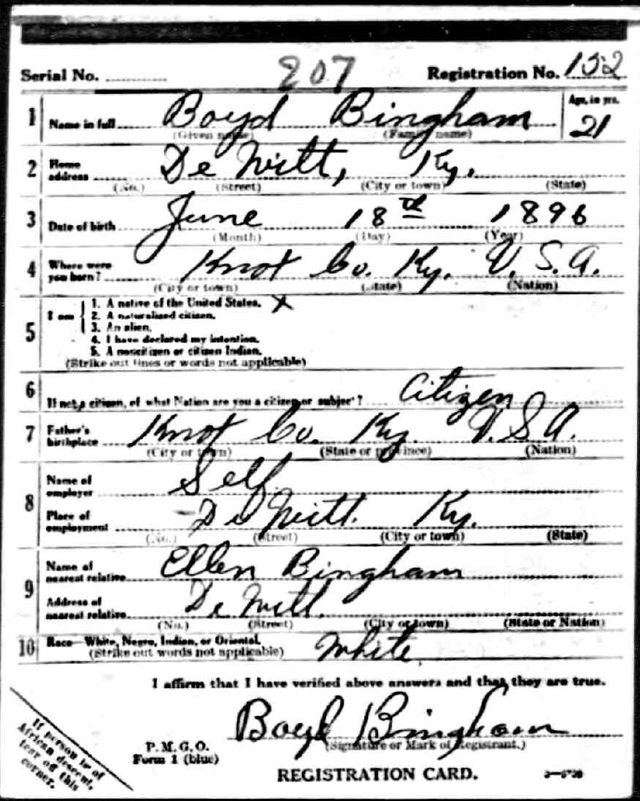 Serial No. 207 Registration No. 132
1 Name in full Boyd Bingham Age, in yrs. 21
(Given name) (Family name)
2 Home address De Witt, Ky.
(No.) (Street) (City or town) (State)
3 Date of birth June 18th 1896
(Month) (Day) (Year)
4 Where were you born? Knot Co. Ky. U.S.A.
(City or town) (State) (Nation)
5 I am 1. A native of the United States. X
2. A naturalized citizen.
3. An alien.
4. I have declared my intention.
5. A noncitizen or citizen Indian.
(Strike out lines or words not applicable)
6 If not a citizen, of what Nation are you a citizen or subject? Citizen
7 Father's birthplace Knot Co. Ky. U.S.A.
(City or town) (State or province) (Nation)
8 Name of employer Self
Place of employment De Witt. Ky.
(No.) (Street) (City or town) (State)
9 Name of nearest relative Ellen Bingham
Address of nearest relative De Witt.
(No.) (Street) (City or town) (State or Nation)
10 Race—White, Negro, Indian, or Oriental. White
(Strike out words not applicable)
I affirm that I have verified above answers and that they are true.
Boyd Bingham
(Signature or Mark of Registrant.)
P. M. G. O.
Form 1 (blue)
REGISTRATION CARD.
If person is of
African descent,
tear off this
corner.